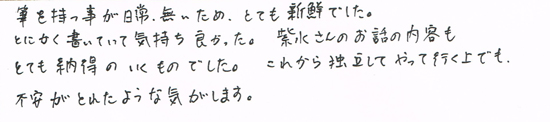 筆を持つ事が日常、無いため、とても新鮮でした。
とにかく書いていて気持ち良かった。 紫水さんのお話の内容も
とても納得のいくものでした。 これから独立してやって行く上でも、
不安がとれたような気がします。